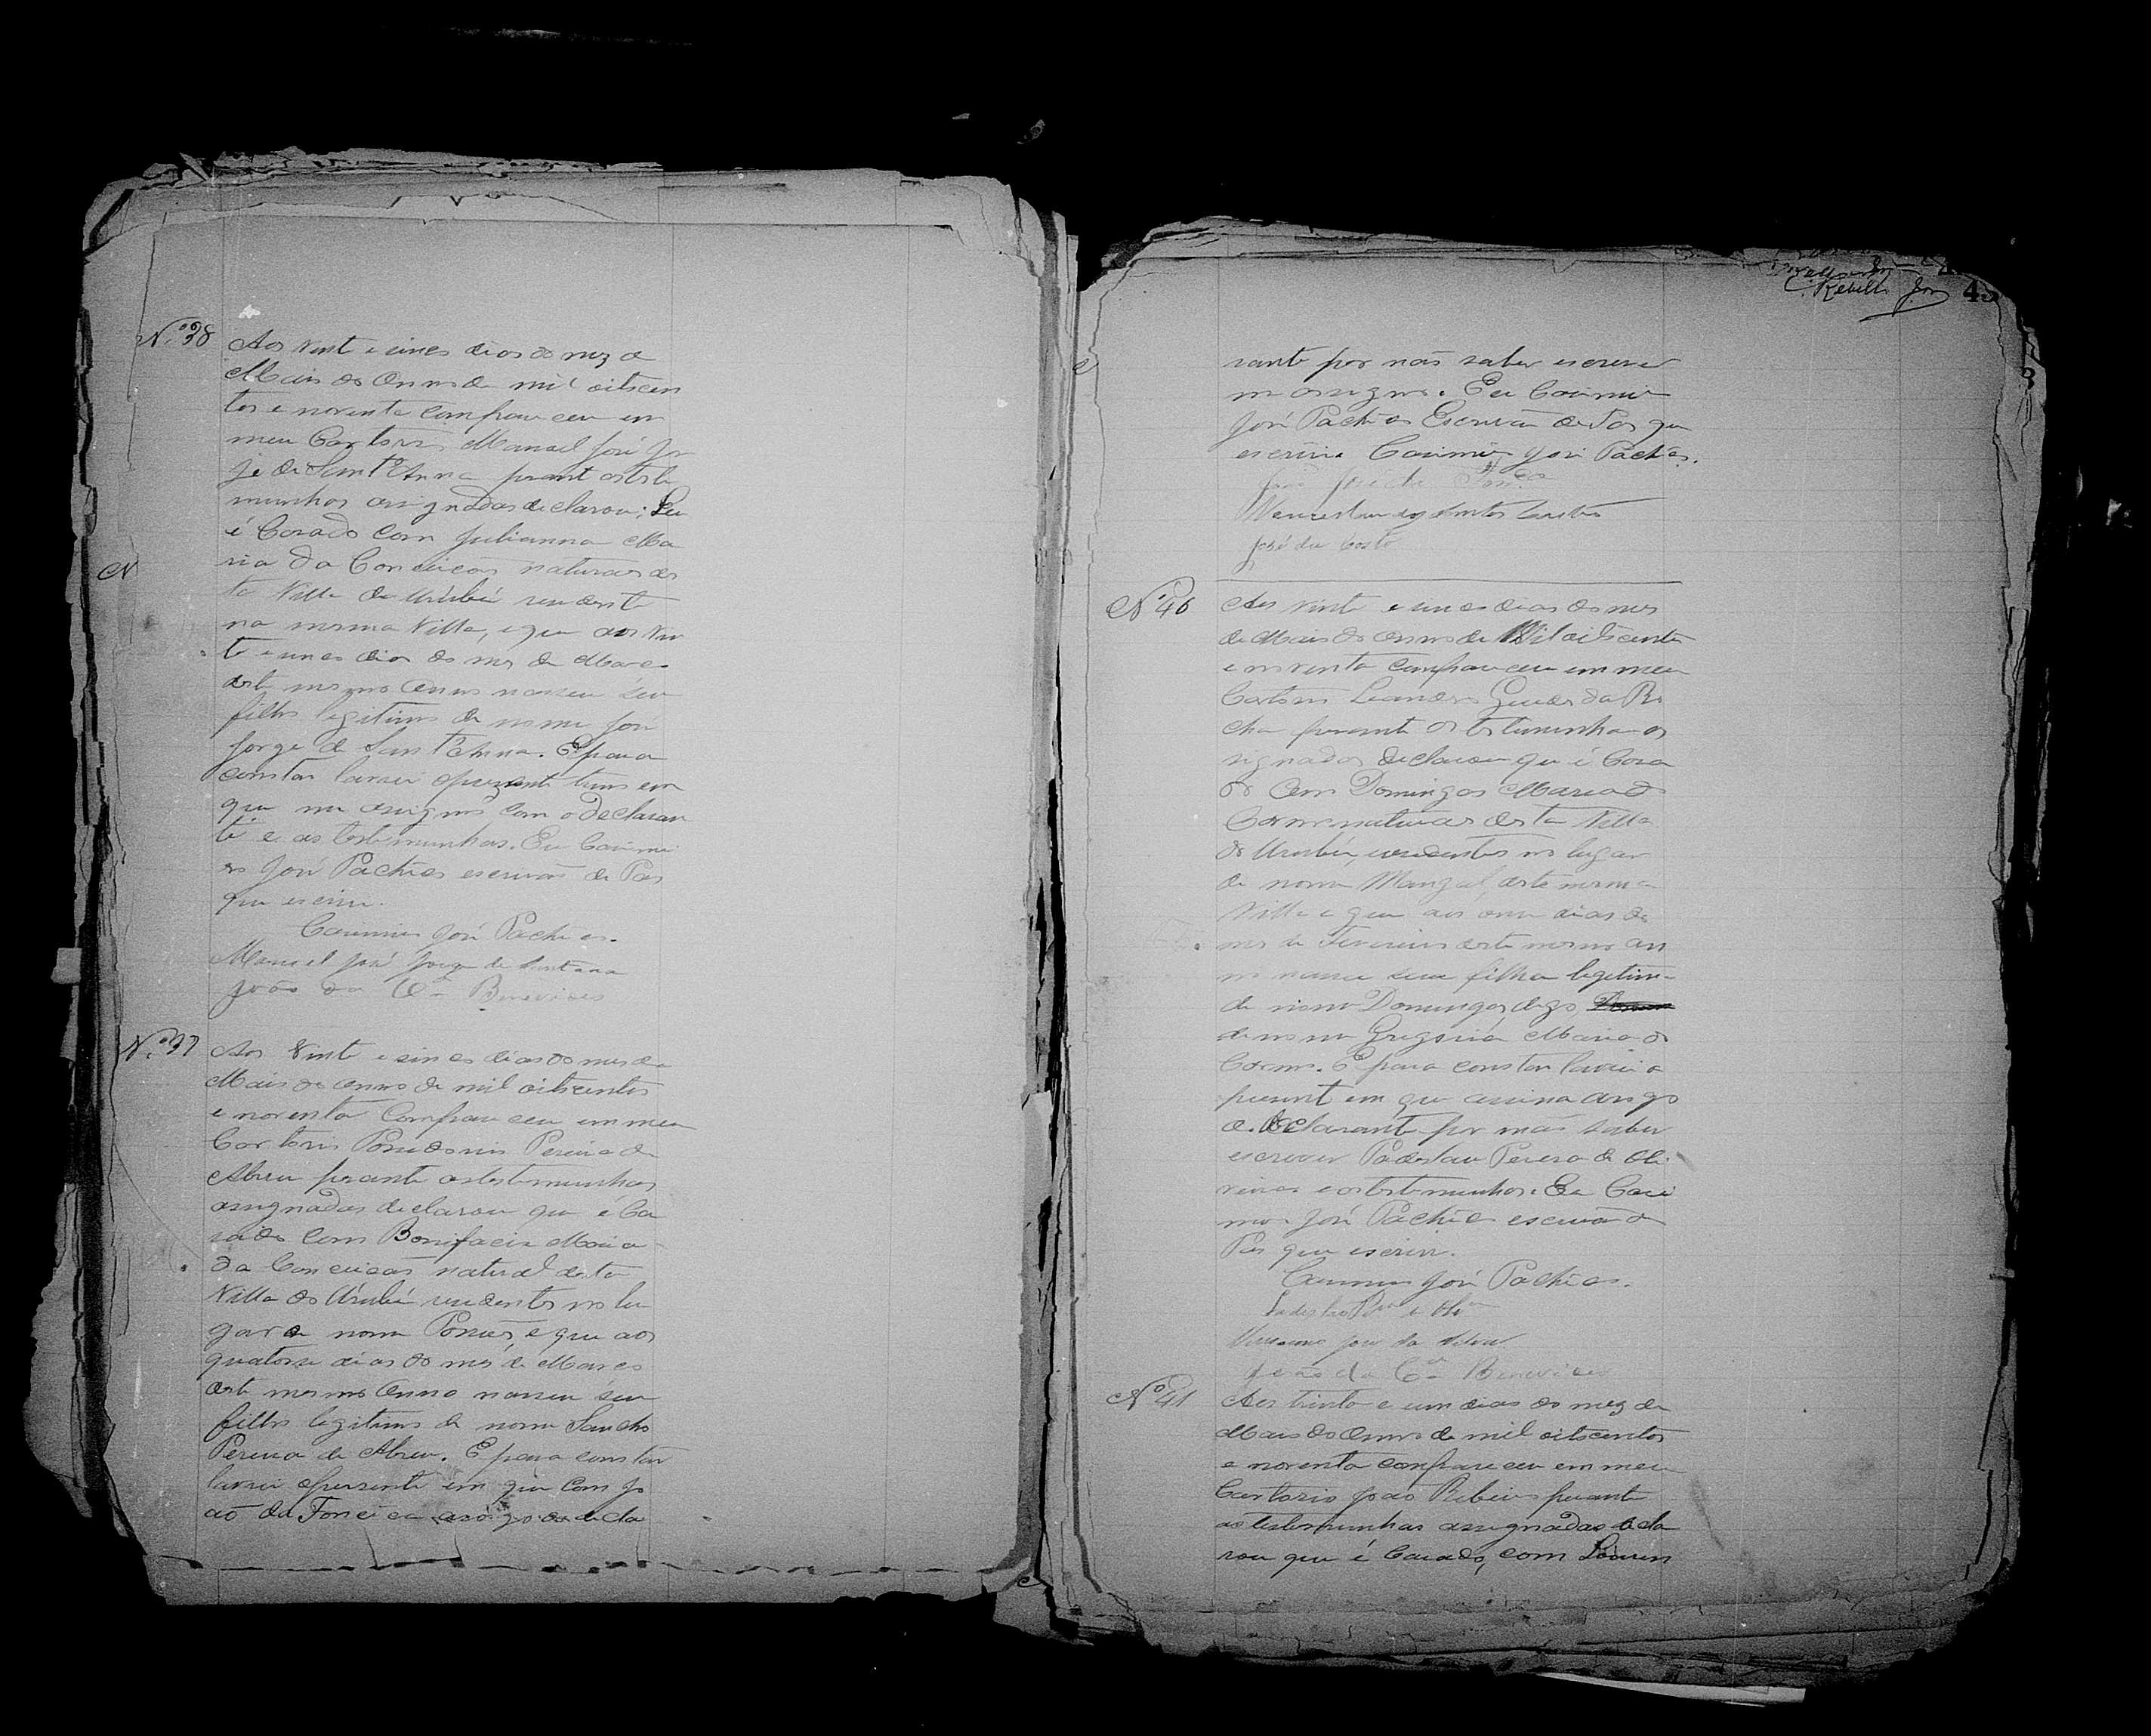 Nº 38
Aos vinte e cinco dias do mez de
Maio do Anno de mil oitocen
tos e noventa compareceu em
meu Cartorio Manoel José Jor
ge de Sant'Anna perant as teste
munhas assignadas declarou; Que
é Casado com Julianna Ma
ria da Conceicão naturaes des
ta Villa do Urubú residente
na mesma Villa, e que aos vin
te e cinco dias do mes de Marco
deste mesmo Anno nasceu seu
filho legitimo de nome José
Jorge de Sant'Anna. E para
constar lavrei o prezente termo em
que me assigno com o declaran
te e as testemunhas. Eu Casimi
ro José Pachêco escrivão de Pas
que escrivi.
Casimiro José Pachêco.
Manoel José Jorge de Santana
João da Cta Benevides
Nº 39
Aos Vinte e cinco dias do mes de
Maio do Anno de mil oitocentos
e noventa Compareceu em meu
Cartorio Possidonio Pereira de
Abreu perante as testemunhas
assignadas declarou que é Ca
sado com Bonifacia Maria
da Conceicão natural desta
Villa do Urubú residentes no lu
gar de nome e que aos
quatorze dias do mes de Marco
deste mesmo Anno nasceu seu
filho legitimo de nome Sancho
Pereira de Abreu. E para constar
lavrei o presente em que com Jo
ão da Fonceca a rôgo do decla
45
rante por não saber escrever
me assigno. Eu Casimiro
José Pachêco Escrivão de Pas que
escrivi. Casimiro José Pachêco.
José da Costa
Nº 40
Aos vinte e cinco dias do mes
de Maio do Anno de Mil oitocentos
e noventa compareceu em meu
Cartorio Leandro da Ro
cha perante as testemunhas as
signadas declarou que é Casa
do Com Domingas Maria do
Carmo naturaes desta Villa
do Urubú, residentes no lugar
de nome Mangal, deste mesma
Villa e que aos onze dias do
mes de Fevereiro deste mesmo an
no nasceu sua filha legitima
de nome Domingas, digo,
de nome Gregoria Maria do
Carmo. E para constar lavrei o
presente em que assina a rogo
do declarante por não saber
escrever Ladeslau Pereira de Oli
veira e as testemunhas. Eu Casi
miro José Pachêco escrivão de
Pas que escrivi.
Casimiro José Pachêco.
José da Silva
João da Cta Benevides
Nº 41
Aos trinta e um dias do mez de
Maio do Anno de mil oitocentos
e noventa compareceu em meu
Cartorio João Ribeiro perante
as testemunhas assignadas decla
rou que é Casado, com Louren